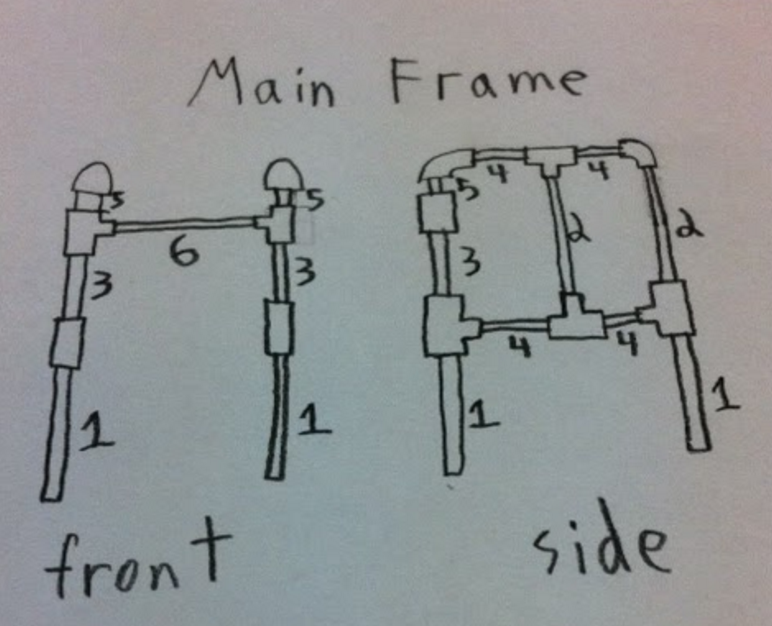 Main Frame
5 5
6
3 3
1 1
front
4 4
5
2 2
3
4 4
1 1
side